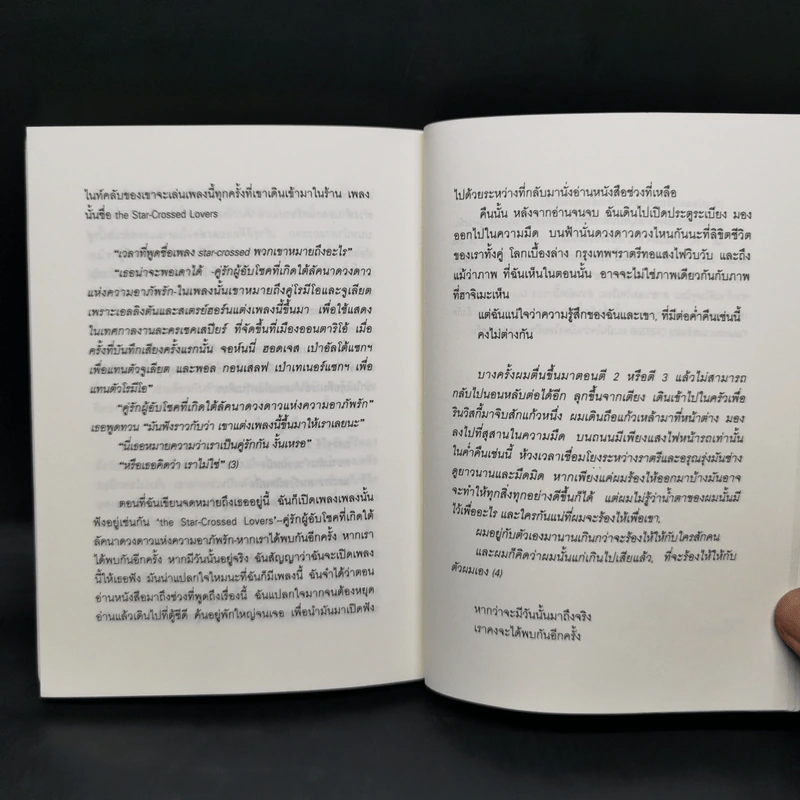 ไนท์คลับของเขาจะเล่นเพลงนี้ทุกครั้งที่เขาเดินเข้ามาในร้าน เพลง
นั้นชื่อ the Star-Crossed Lovers
“เวลาที่พูดชื่อเพลง star-crossed พวกเขาหมายถึงอะไร”
“เธอน่าจะพอเดาได้ -คู่รักผู้อับโชคที่เกิดใต้ลัคนาดวงดาว
แห่งความอาภัพรัก-ในเพลงนั้นเขาหมายถึงคู่โรมีโอและจูเลียต
เพราะเอลลิงตันและสเตรย์ฮอร์นแต่งเพลงนี้ขึ้นมา เพื่อใช้แสดง
ในเทศกาลงานละครเชคเสปียร์ ที่จัดขึ้นที่เมืองออนตาริโอ้ เมื่อ
ครั้งที่บันทึกเสียงครั้งแรกนั้น จอห์นนี่ ฮอดเจส เป่าอัลโต้แซกฯ
เพื่อแทนตัวจูเลียต และพอล กอนเสลฟ เป่าเทเนอร์แซกฯ เพื่อ
แทนตัวโรมีโอ”
“คู่รักผู้อับโชคที่เกิดใต้ลัคนาดวงดาวแห่งความอาภัพรัก”
เธอพูดทวน “มันฟังราวกับว่า เขาแต่งเพลงนี้ขึ้นมาให้เราเลยนะ”
“นี่เธอหมายความว่าเราเป็นคู่รักกัน งั้นเหรอ”
“หรือเธอคิดว่า เราไม่ใช่” (3)
ตอนที่ฉันเขียนจดหมายถึงเธออยู่นี้ ฉันก็เปิดเพลงเพลงนั้น
ฟังอยู่เช่นกัน ‘the Star-Crossed Lovers’--คู่รักผู้อับโชคที่เกิดใต้
ลัคนาดวงดาวแห่งความอาภัพรัก-หากเราได้พบกันอีกครั้ง หากเรา
ได้พบกันอีกครั้ง หากมีวันนั้นอยู่จริง ฉันสัญญาว่าฉันจะเปิดเพลง
นี้ให้เธอฟัง มันน่าแปลกใจไหมนะที่ฉันก็มีเพลงนี้ ฉันจำได้ว่าตอน
อ่านหนังสือมาถึงช่วงที่พูดถึงเรื่องนี้ ฉันแปลกใจมากจนต้องหยุด
อ่านแล้วเดินไปที่ตู้ซีดี ค้นอยู่พักใหญ่จนเจอ เพื่อนำมันมาเปิดฟัง
ไปด้วยระหว่างที่กลับมานั่งอ่านหนังสือช่วงที่เหลือ
คืนนั้น หลังจากอ่านจนจบ ฉันเดินไปเปิดประตูระเบียง มอง
ออกไปในความมืด บนฟ้านั่นดวงดาวดวงไหนกันนะที่ลิขิตชีวิต
ของเราทั้งคู่ โลกเบื้องล่าง กรุงเทพฯราตรีทอแสงไฟวิบวับ และถึง
แม้ว่าภาพ ที่ฉันเห็นในตอนนั้น อาจจะไม่ใช่ภาพเดียวกันกับภาพ
ที่ฮาจิเมะเห็น
แต่ฉันแน่ใจว่าความรู้สึกของฉันและเขา, ที่มีต่อค่ำคืนเช่นนี้
คงไม่ต่างกัน
บางครั้งผมตื่นขึ้นมาตอนตี 2 หรือตี 3 แล้วไม่สามารถ
กลับไปนอนหลับต่อได้อีก ลุกขึ้นจากเตียง เดินเข้าไปในครัวเพื่อ
รินวิสกี้มาจิบสักแก้วหนึ่ง ผมเดินถือแก้วเหล้ามาที่หน้าต่าง มอง
ลงไปที่สุสานในความมืด บนถนนมีเพียงแสงไฟหน้ารถเท่านั้น
ในค่ำคืนเช่นนี้ ห้วงเวลาเชื่อมโยงระหว่างราตรีและอรุณรุ่งมันช่าง
ดูยาวนานและมืดมิด หากเพียงแค่ผมร้องไห้ออกมาบ้างมันอาจ
จะทำให้ทุกสิ่งทุกอย่างดีขึ้นก็ได้ แต่ผมไม่รู้ว่าน้ำตาของผมนั้นมี
ไว้เพื่ออะไร และใครกันแน่ที่ผมจะร้องไห้เพื่อเขา,
ผมอยู่กับตัวเองมานานเกินกว่าจะร้องไห้ให้กับใครสักคน
และผมก็คิดว่าผมนั้นแก่เกินไปเสียแล้ว, ที่จะร้องไห้ให้กับ
ตัวผมเอง (4)
หากว่าจะมีวันนั้นมาถึงจริง
เราคงจะได้พบกันอีกครั้ง